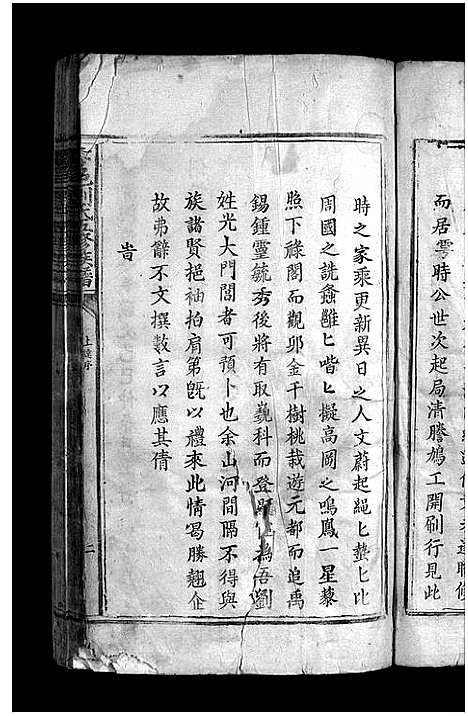 而居零時公世次起局清謄鳩工開刷行見此
時之家乘更新異日之人文蔚起繩匕蟄匕比
周國之詵螽雝匕喈匕擬高岡之鳴鳳一星藜
照下祿閣而觀卯金千樹桃栽遊元都而追禹
錫鍾靈毓秀後將有取巍科而登顯為吾劉
姓光大門閭者可預卜也余山河間隔不得與
族諸賢挹袖拍肩第旣以禮來此情曷勝翹企
故弗辭不文撰數言以應其倩
旹
邑劉氏族譜
序
二